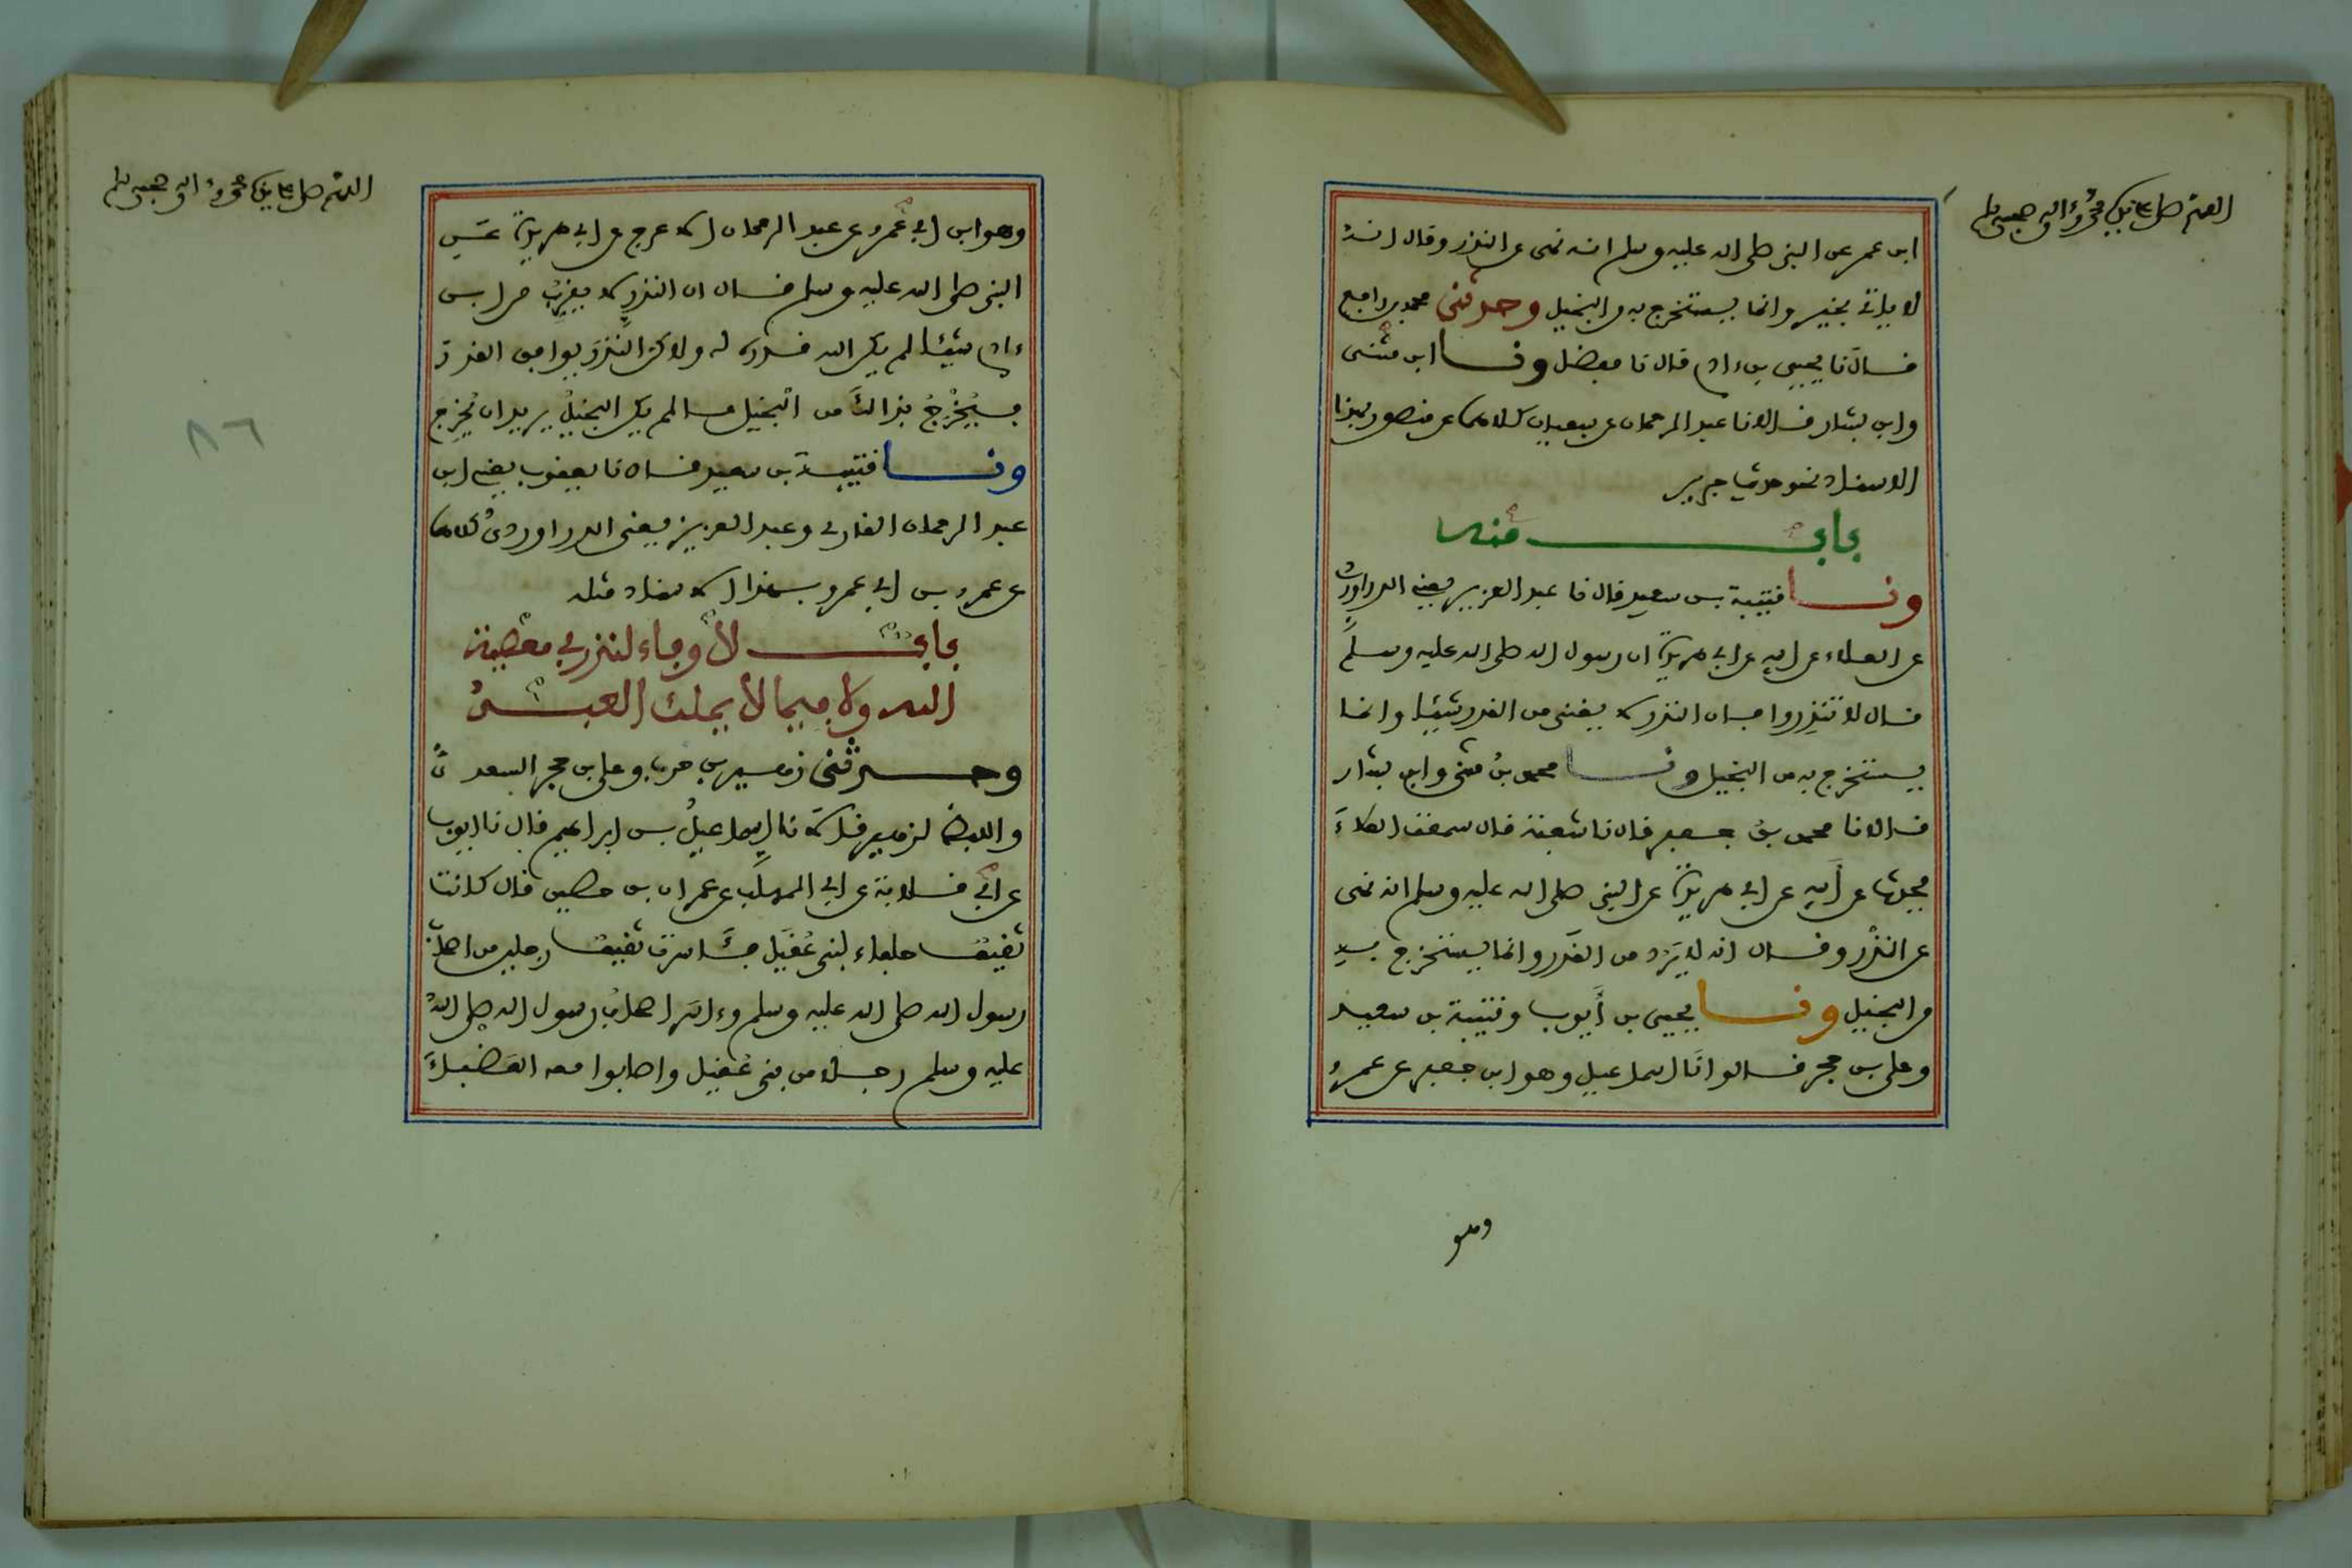 اللهم صل على نبيك محمد وءاله وصحبه وسلم
ابن عمر عن النبي صلى الله عليه وسلم انه نهى عن النذر وقال انه
لا ياتي بخير وانما يستخرج به من البخيل وحدثني محمد بن رافع
قال نا يحيى بن ءادم قال نا مفضل ونا ابن مثنى
وابن بشار قالا نا عبد الرحمان عن سفيان كلاهما عن منصور بهذا
الاسناد نحو حديث جرير
باب منه
ونا قتيبة بن سعيد قال نا عبد العزيز يعني الدراوردي
عن العلاء عن ابيه عن ابي هريرة ان رسول الله صلى الله عليه وسلم
قال لا تنذروا فان النذر لا يغني من القدر شيئا وانما
يستخرج به من البخيل ونا محمد بن مثنى وابن بشار
قالا نا محمد بن جعفر قال نا شعبة قال سمعت العلاء
يحدث عن أبيه عن ابي هريرة عن النبي صلى الله عليه وسلم انه نهى
عن النذر وقال انه لا يرد من القدر وانما يستخرج به
من البخيل ونا يحيى بن أيوب وقتيبة بن سعيد
وعلي بن حجر قالوا نا اسماعيل وهو ابن جعفر عن عمرو
وهو
اللهم صل على نبيك محمد وءاله وصحبه وسلم
وهو ابن ابي عمرو عن عبد الرحمان الاعرج عن ابي هريرة عن
النبي صلى الله عليه وسلم قال ان النذر لا يقرب من ابن
ءادم شيئا لم يكن الله قدره له ولاكن النذر يوافق القدر
فيخرج بذالك من البخيل ما لم يكن البخيل يريد ان يخرج
٨٦
ونا قتيبة بن سعيد قال نا يعقوب يعني ابن
عبد الرحمان القاري وعبد العزيز يعني الدراوردي كلاهما
عن عمرو بن ابي عمرو بهذا الاسناد مثله
باب لا وفاء لنذر في معصية
الله ولا فيما لا يملك العبد
وحدثني زهير بن حرب وعلي بن حجر السعدي
واللفظ لزهير قالا نا إسماعيل بن إبراهيم قال نا ايوب
عن ابي قلابة عن ابي المهلب عن عمران بن حصين قال كانت
ثقيف حلفاء لبني عقيل فأسرت ثقيف رجلين من اصحاب
رسول الله صلى الله عليه وسلم وءاسر اصحاب رسول الله صلى الله
عليه وسلم رجلا من بني عقيل واصابوا معه العضباء